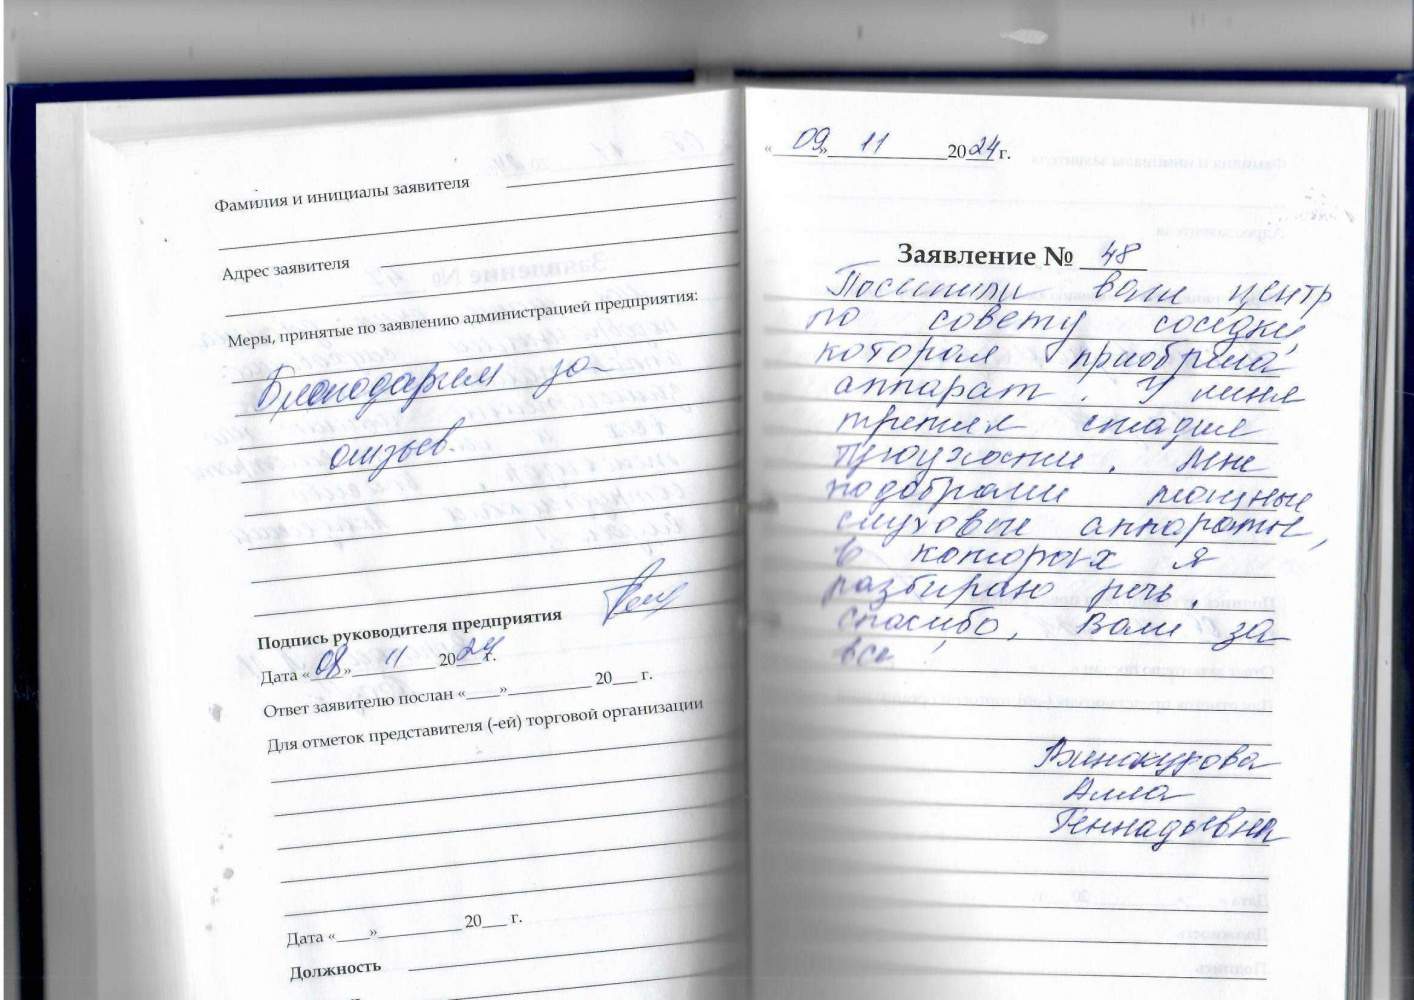 Фамилия и инициалы заявителя
Адрес заявителя
Меры, принятые по заявлению администрацией предприятия:
Благодарим за
отзыв.
Подпись руководителя предприятия
Дата «08» 11 2024 г.
Ответ заявителю послан «____»__________ 20___ г.
Для отметок представителя (-ей) торговой организации
Дата «____»__________ 20___ г.
Должность
«09» 11 2024 г.
Заявление № 48
Посетили ваш центр
по совету соседки,
которая приобрела
аппарат. У меня
третья стадия
тугоухости. Мне
подобрали мощные
слуховые аппараты,
в которых я
разбираю речь.
спасибо, Вам за
все!
Винакурова
Алла
Геннадьевна